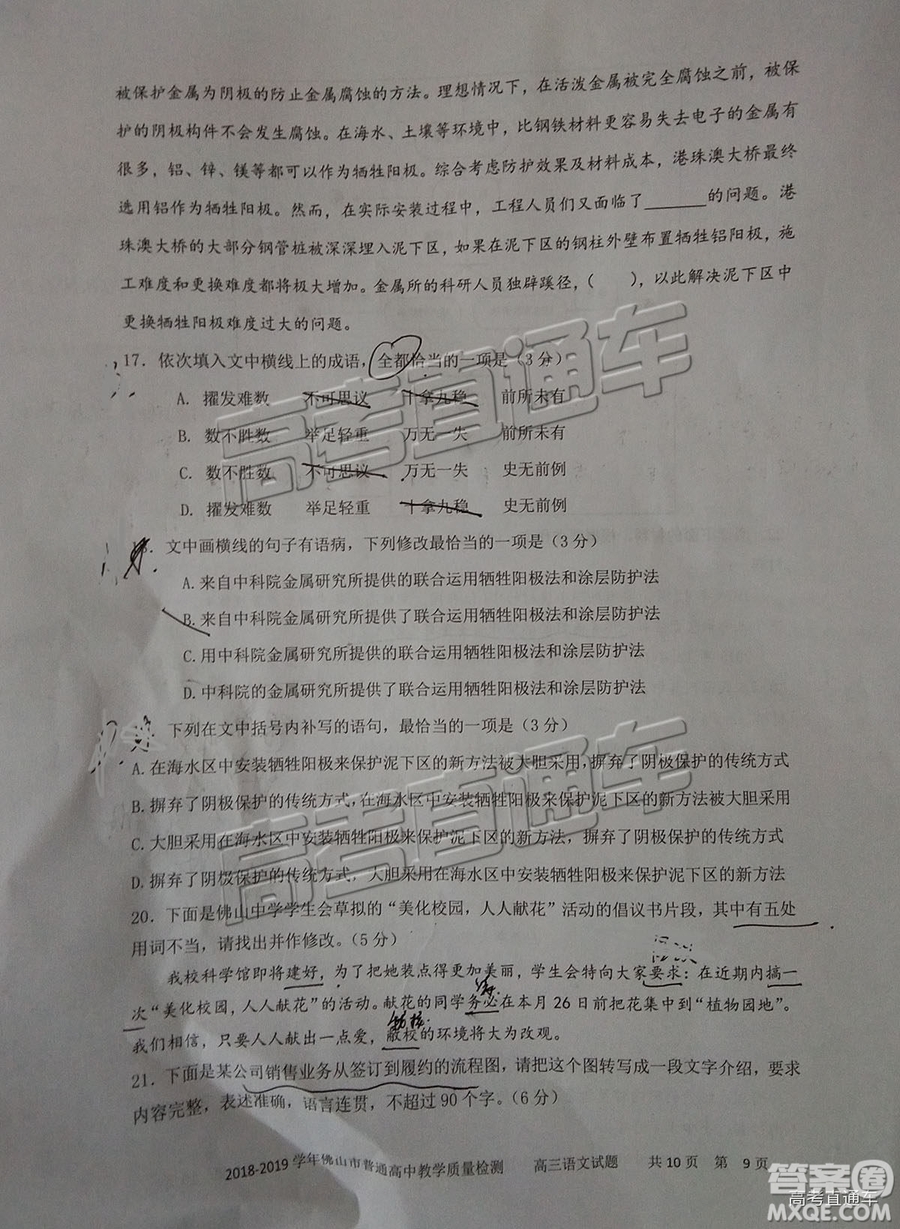 被保护金属为阴极的防止金属腐蚀的方法。理想情况下，在活泼金属被完全腐蚀之前，被保
护的阴极构件不会发生腐蚀。在海水、土壤等环境中，比钢铁材料更容易失去电子的金属有
很多，铝、锌、镁等都可以作为牺牲阳极。综合考虑防护效果及材料成本，港珠澳大桥最终
选用铝作为牺牲阳极。然而，在实际安装过程中，工程人员们又面临了______的问题。港
珠澳大桥的大部分钢管桩被深深埋入泥下区，如果在泥下区的钢柱外壁布置牺牲铝阳极，施
工难度和更换难度都将极大增加。金属所的科研人员独辟蹊径，（　　），以此解决泥下区中
更换牺牲阳极难度过大的问题。
17．依次填入文中横线上的成语，全都恰当的一项是（3 分）
A. 擢发难数 不可思议 十拿九稳 前所未有
B. 数不胜数 举足轻重 万无一失 前所未有
C. 数不胜数 不可思议 万无一失 史无前例
D. 擢发难数 举足轻重 十拿九稳 史无前例
文中画横线的句子有语病，下列修改最恰当的一项是（3 分）
A.来自中科院金属研究所提供的联合运用牺牲阳极法和涂层防护法
B.来自中科院金属研究所提供了联合运用牺牲阳极法和涂层防护法
C.用中科院金属研究所提供的联合运用牺牲阳极法和涂层防护法
D.中科院的金属研究所提供了联合运用牺牲阳极法和涂层防护法
下列在文中括号内补写的语句，最恰当的一项是（3 分）
A.在海水区中安装牺牲阳极来保护泥下区的新方法被大胆采用，摒弃了阴极保护的传统方式
B.摒弃了阴极保护的传统方式，在海水区中安装牺牲阳极来保护泥下区的新方法被大胆采用
C.大胆采用在海水区中安装牺牲阳极来保护泥下区的新方法，摒弃了阴极保护的传统方式
D.摒弃了阴极保护的传统方式，大胆采用在海水区中安装牺牲阳极来保护泥下区的新方法
20．下面是佛山中学学生会草拟的“美化校园，人人献花”活动的倡议书片段，其中有五处
用词不当，请找出并作修改。（5 分）
我校科学馆即将建好，为了把她装点得更加美丽，学生会特向大家要求：在近期内搞一
次“美化校园，人人献花”的活动。献花的同学务必在本月 26 日前把花集中到“植物园地”。
我们相信，只要人人献出一点爱，敝校的环境将大为改观。
21．下面是某公司销售业务从签订到履约的流程图，请把这个图转写成一段文字介绍，要求
内容完整，表述准确，语言连贯，不超过 90 个字。（6 分）
2018-2019 学年佛山市普通高中教学质量检测 高三语文试题 共 10 页 第 9 页
高考直通车
高考直通车
答案圈
高考直通车
MXQE.COM